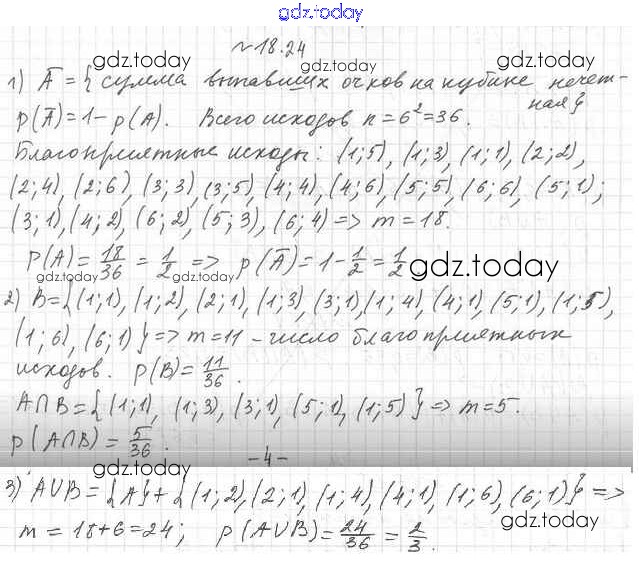 gdz.today
№18.24
1) A̅ = { сумма выпавших очков на кубике нечет-
ная}
P(A̅)=1-p(A). Всего исходов n=6²=36.
Благоприятные исходы: (1;5), (1;3), (1;1), (2;2),
(2;4), (2;6), (3;3), (3;5), (4;4), (4;6), (5;5), (6;6), (5;1);
(3;1), (4;2), (6;2), (5;3), (6;4) => m=18.
P(A)= 18/36 = 1/2 => p(A̅)=1-1/2=1/2
2) B={(1;1), (1;2), (2;1), (1;3), (3;1), (1;4), (4;1), (5;1), (1;5),
(1;6), (6;1)} => m=11 - число благоприятных
исходов. P(B)= 11/36.
A∩B={(1;1), (1;3), (3;1), (5;1), (1;5)} => m=5.
p(A∩B) = 5/36.
-4-
3) A∪B={A}+{(1;2), (2;1), (1;4), (4;1), (1;6), (6;1)} =>
m=18+6=24; p(A∪B)= 24/36 = 2/3.
gdz.today
gdz.today
gdz.today
gdz.today
gdz.today
gdz.today
gdz.today
gdz.today
gdz.today
gdz.today
gdz.today
gdz.today